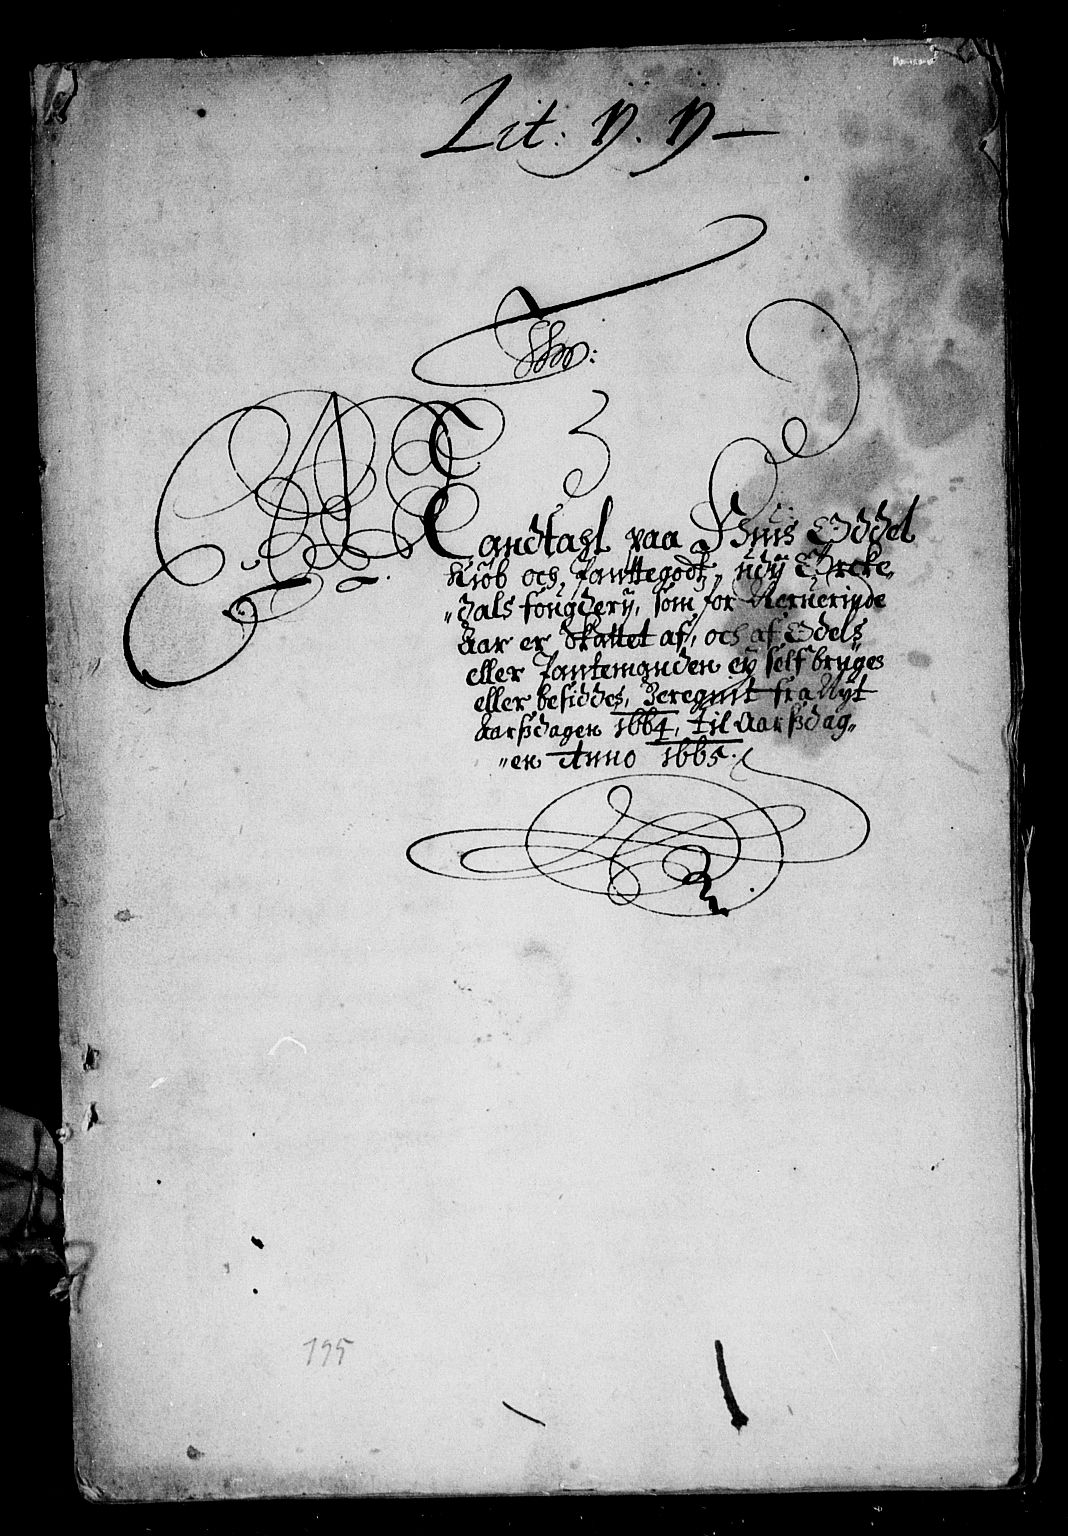 Lit: Y. Y
Mandtahl paa Huis Oddel
Kiøb och, Panttegodtz, udÿ Örcke„
„dals fougderÿ, som for Neruerinde
Aar er Skattet af, och af Odels
eller Pantemanden eÿ self bruges
eller besiddes, Beregnit fra Nyt
Aarßdagen 1664, til Aarßdag„
„en Anno 1665.
195